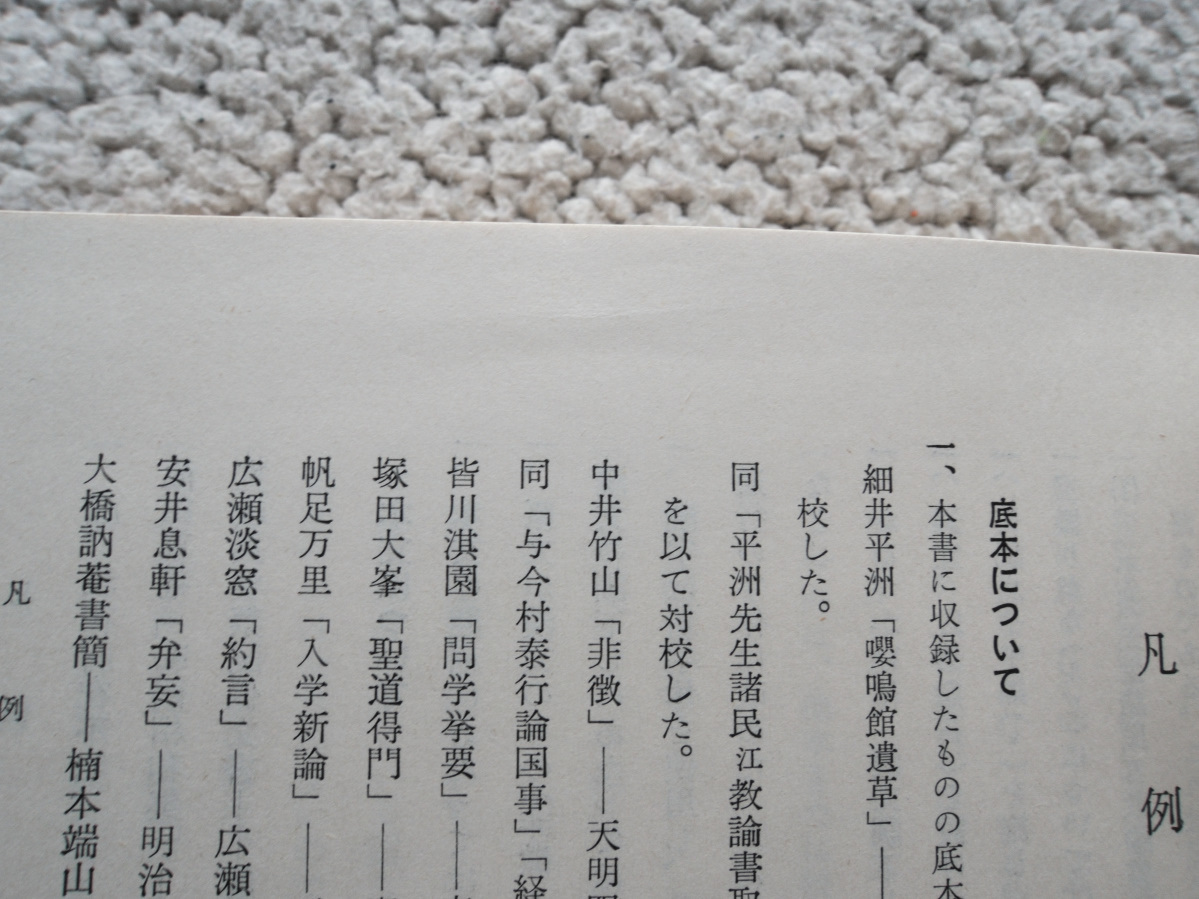 凡例
底本について
一、本書に収録したものの底本
細井平洲「嚶鳴館遺草」――
校した。
同「平洲先生諸民江教諭書
を以て対校した。
中井竹山「非徴」――天明
同「与今村泰行論国事」「経
皆川淇園「問学挙要」――
塚田大峯「聖道得門」――
帆足万里「入学新論」――
広瀬淡窓「約言」――広瀬
安井息軒「弁妄」――明治
大橋訥菴書簡――楠本端山
凡例